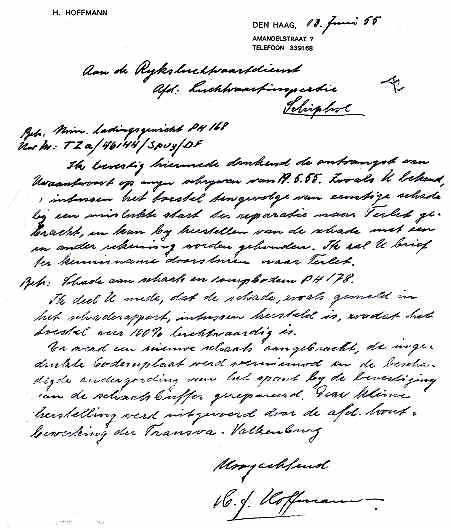 H. HOFFMANN
DEN HAAG, 13. Juni 55
AMANDELSTRAAT 7
TELEFOON 339168
Aan de Ryksluchtvaartdienst
Afd. Luchtvaartinspectie
Schiphol
Betr. Min. ladingsgewicht PH 168
Uw Nr. TZa/46144/Spuy/DF
Ik bevestig hiermede dankend de ontvangst van
Uw antwoord op myn schryven van 19.5.55. Zoals U bekend,
is intussen het toestel tengevolge van ernstige schade
by een mislukte start ter reparatie naar Terlet ge-
bracht, en kan by herstellen van de schade met een
en ander rekening worden gehouden. Ik zal U brief
ter kennisname doorsturen naar Terlet.
Betr. Schade aan schaats en rompbodem PH 178.
Ik deel U mede, dat de schade, zoals gemeld in
het schaderapport, intussen hersteld is, zodat het
toestel weer 100% luchtwaardig is.
Er werd een nieuwe schaats aangebracht, de inge-
drukte bodemplaat werd vernieuwd en de bescha-
digde ondergording van het spant by de bevestiging
van de schaatsbuffer gerepareerd. Deze kleine
herstelling werd uitgevoerd door de afd. hout-
bewerking der Transva. Valkenburg
Hoogachtend
H. J. Hoffmann